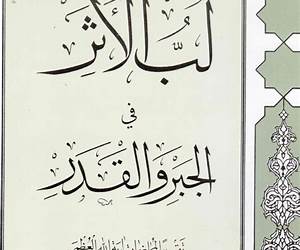 لُبُّ الأَثَرِ
في
الجَبْرِ وَالقَدَرِ